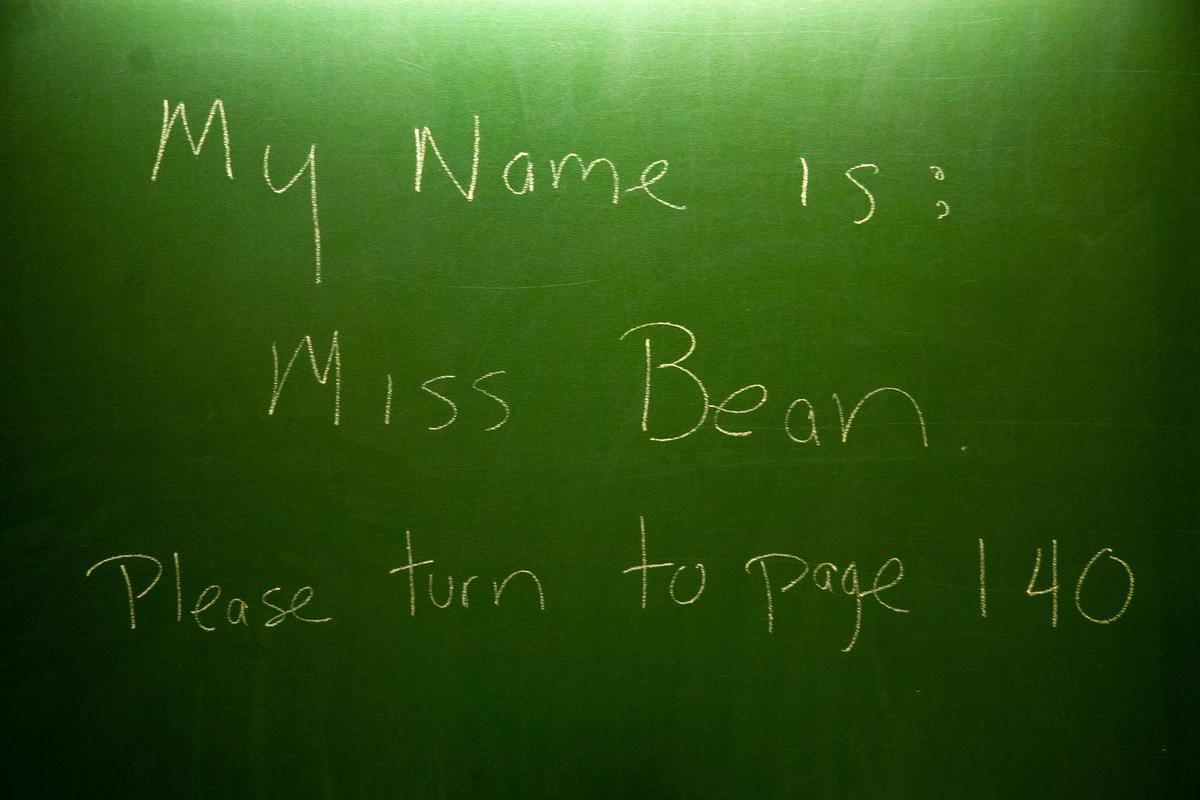 My Name is:
Miss Bean.
Please turn to page 140